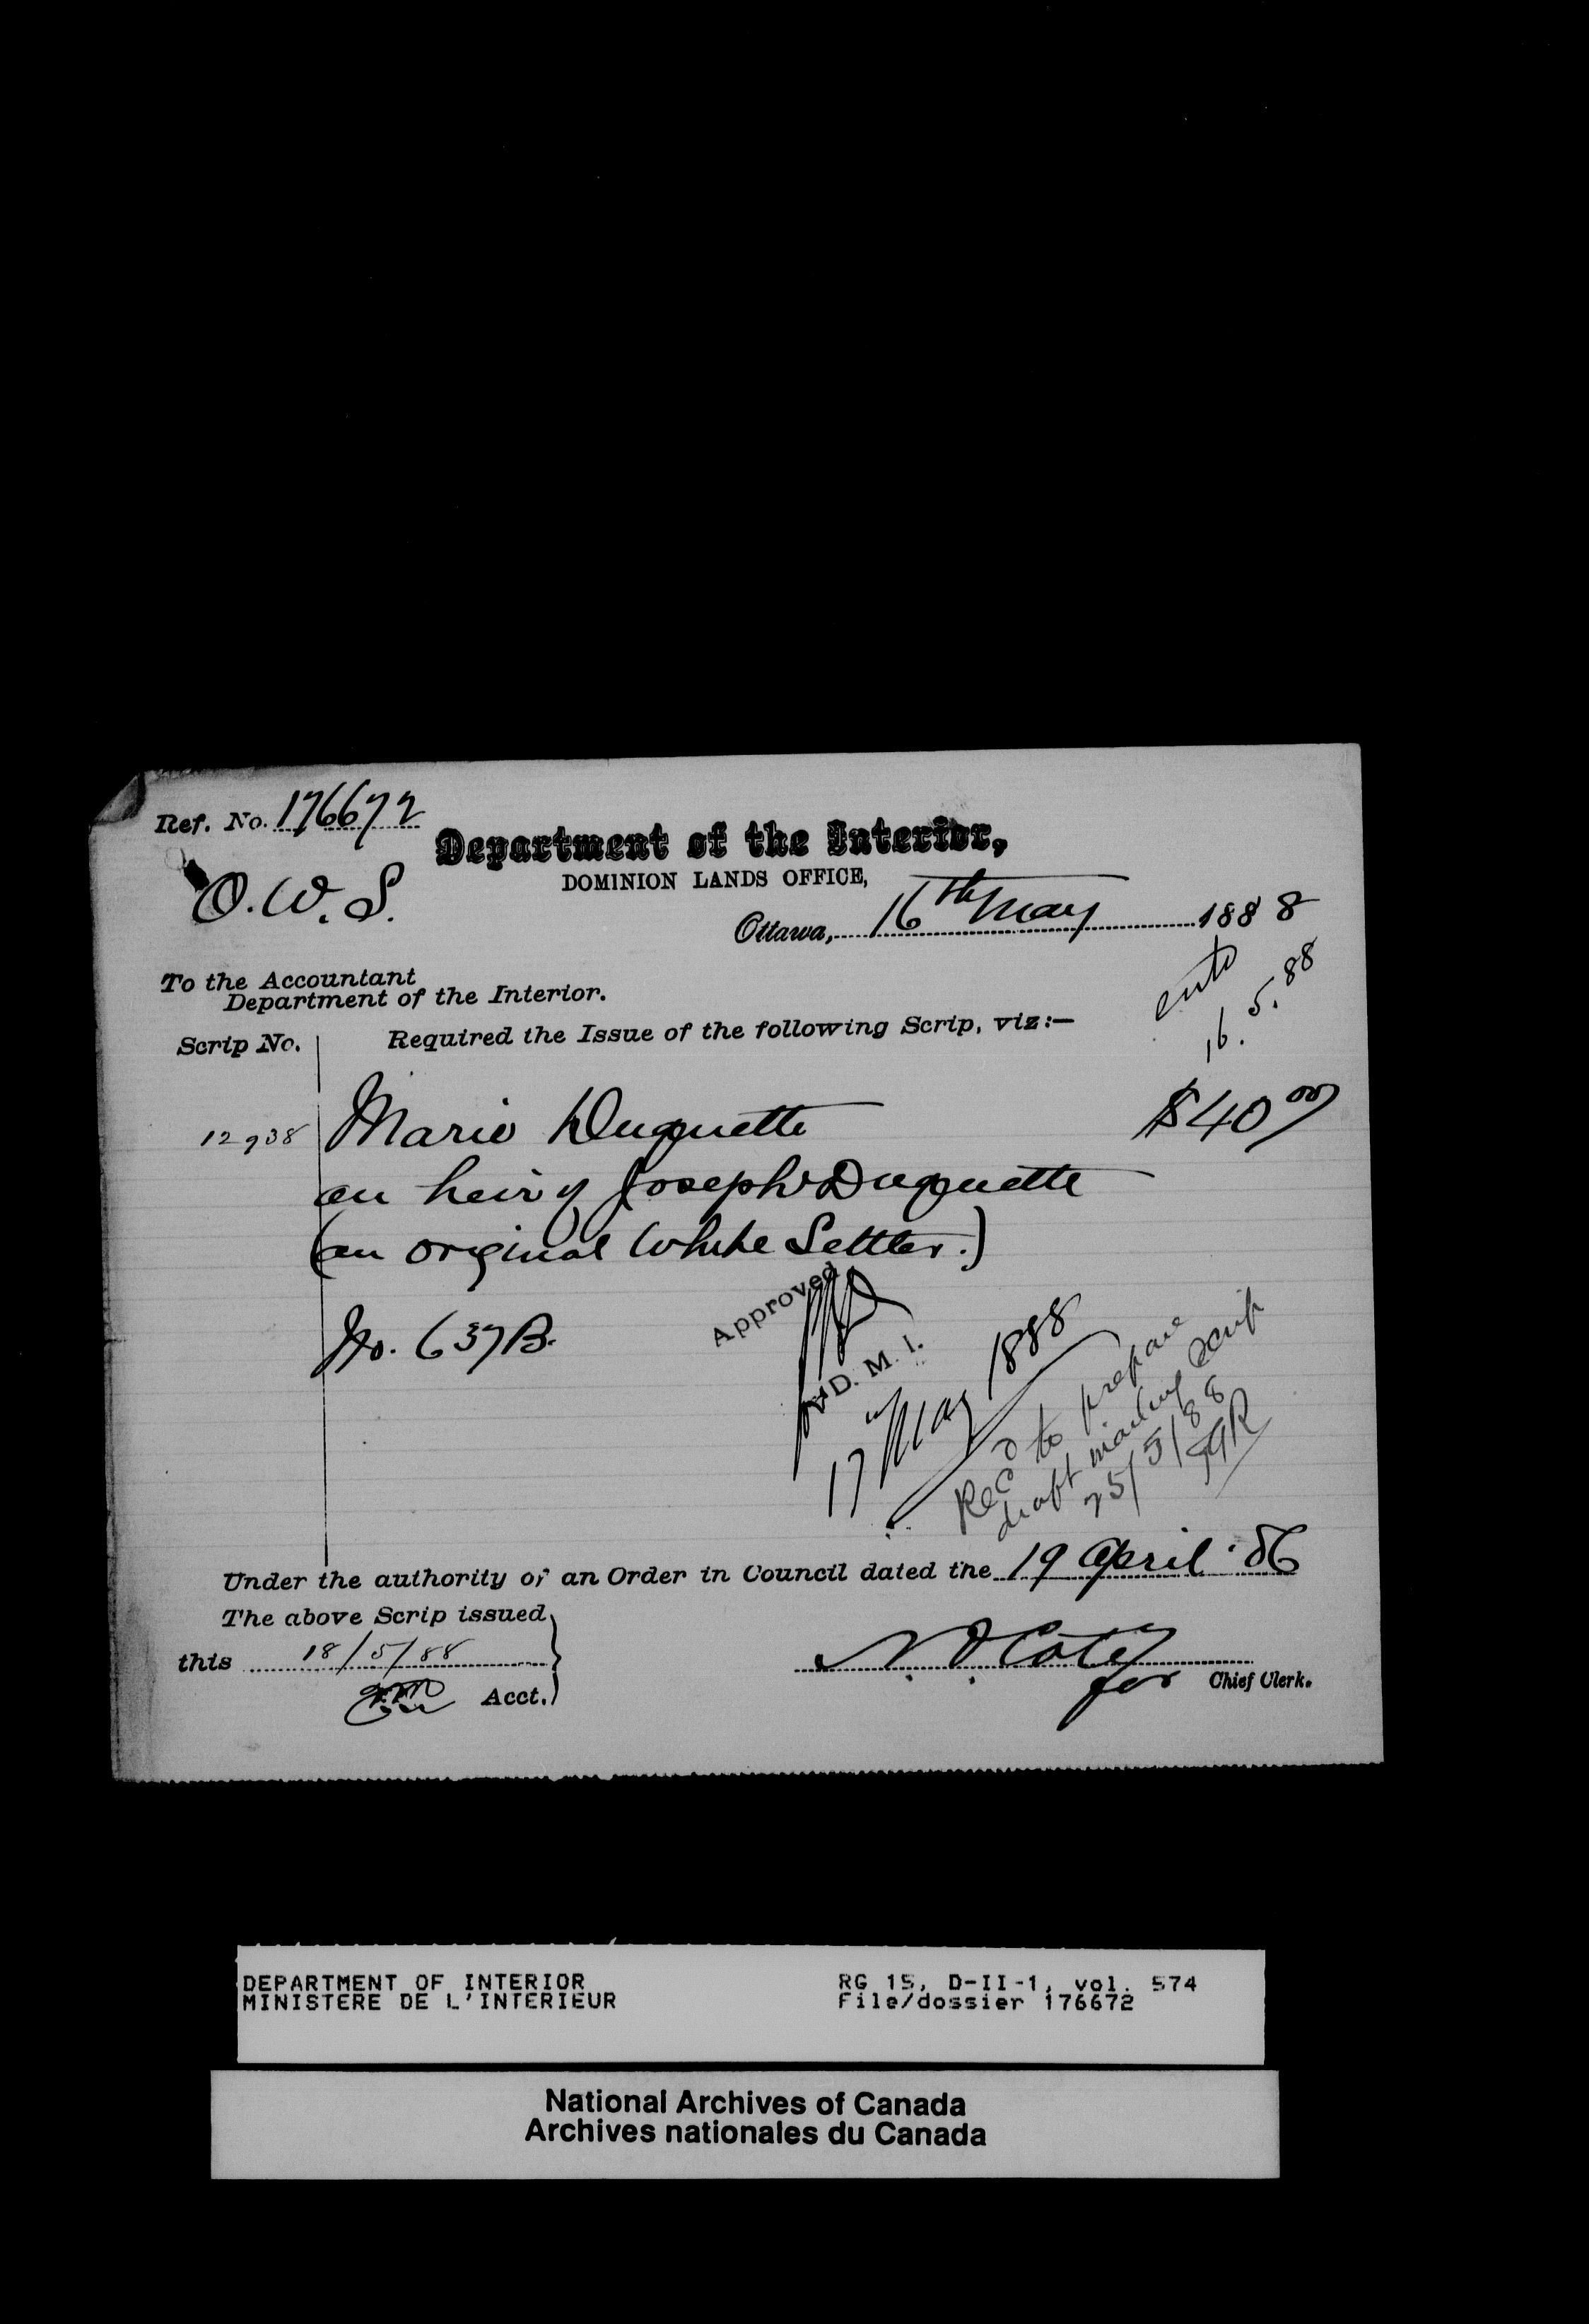 Ref. No. 176672
Department of the Interior,
DOMINION LANDS OFFICE,
O.W.S.
Ottawa, 16th May 1888
To the Accountant
Department of the Interior.
16.5.88
Scrip No. Required the Issue of the following Scrip, viz:—
12938 Marie Duquette $40 00
an heir of Joseph Duquette
(an original White Settler.)
No. 637B.
Approved
D. M. I.
17 May 1888
Recd to prepare
draft mailing scrip
25/5/88
Under the authority of an Order in Council dated the 19 April '86
The above Scrip issued
this 18/5/88
Acct.
N. O. Coté
for Chief Clerk.
DEPARTMENT OF INTERIOR
MINISTERE DE L'INTERIEUR
RG 15, D-II-1, vol. 574
File/dossier 176672
National Archives of Canada
Archives nationales du Canada